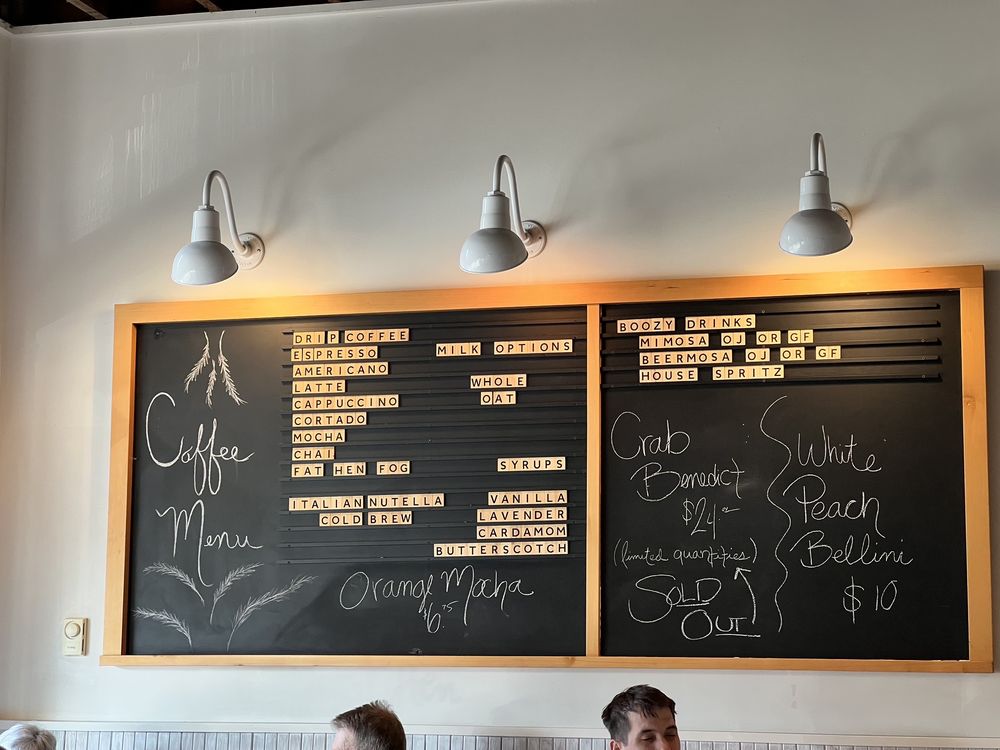 Coffee
Menu
DRIP COFFEE
ESPRESSO
AMERICANO
LATTE
CAPPUCCINO
CORTADO
MOCHA
CHAI
FAT HEN FOG
ITALIAN NUTELLA
COLD BREW
MILK OPTIONS
WHOLE
OAT
SYRUPS
VANILLA
LAVENDER
CARDAMOM
BUTTERSCOTCH
Orange Mocha
$6.75
BOOZY DRINKS
MIMOSA OJ OR GF
BEERMOSA OJ OR GF
HOUSE SPRITZ
Crab
Benedict
$24
(limited quantities)
SOLD
OUT
White
Peach
Bellini
$10